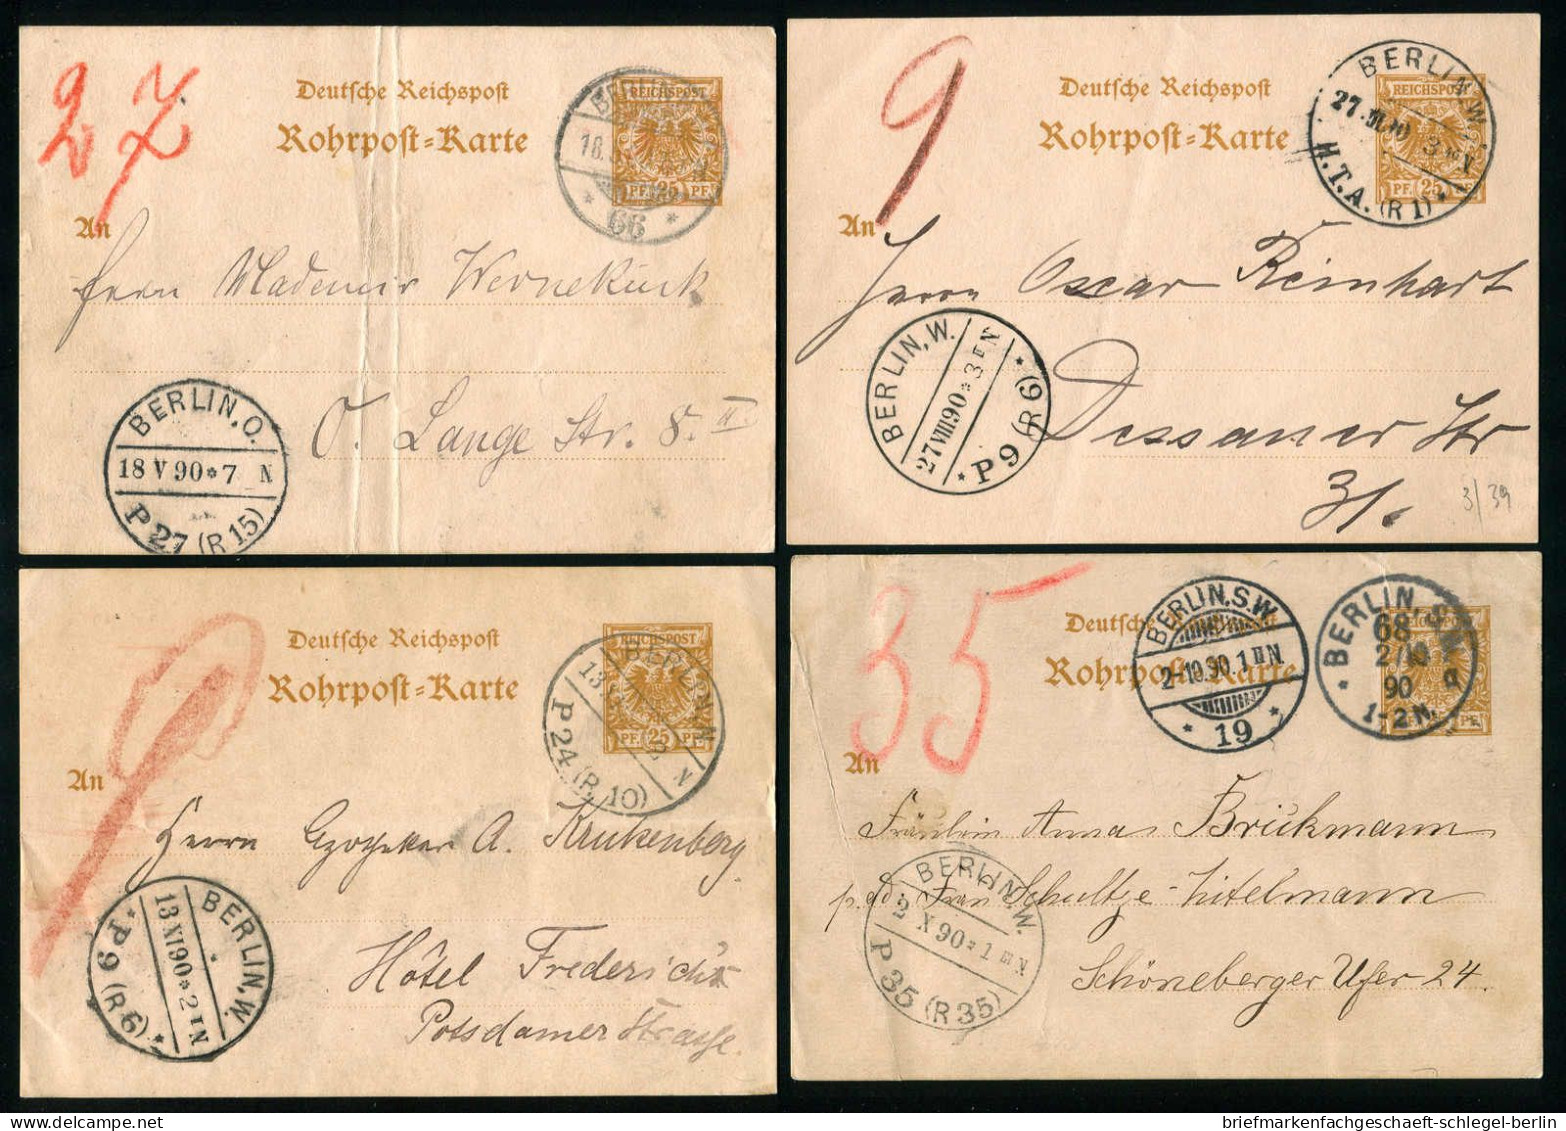 27
Deutsche Reichspost
Rohrpost-Karte
REICHSPOST
PF. 25 PF.
66
An
Herrn Wladimir Wernekinck
O. Lange Str. 8. II.
BERLIN, O.
18 V 90 * 7 N
P 27 (R 15)
9
Deutsche Reichspost
Rohrpost-Karte
REICHSPOST
PF. 25 PF.
BERLIN.W.
H.T.A. (R 1)
An
Herrn Oscar Reinhart
Dessauer Str
31.
3/39
BERLIN, W.
27 VIII 90 * 3 N
P 9 (R 6)
9
Deutsche Reichspost
Rohrpost-Karte
REICHSPOST
PF. 25 PF.
BERLIN.W.
P 24 (R. 10)
An
Herrn Apotheker A. Krukenberg
Hôtel Frederich
Potsdamer Strasse.
BERLIN, W.
13 XI 90 * 2 I N
P 9 (R 6)
35
Deutsche Reichspost
Rohrpost-Karte
BERLIN.S.W.
2-10.90. 1 II N
19
BERLIN, S.W.
68
2/10
90 a
1-2 N.
An
Fräulein Anna Brickmann
p. ad. Frau Schultze-Zitelmann
Schöneberger Ufer 24.
BERLIN.W.
2 X 90 * 1 III N
P 35 (R 35)
briefmarkenfachgeschaeft-schlegel-berlin